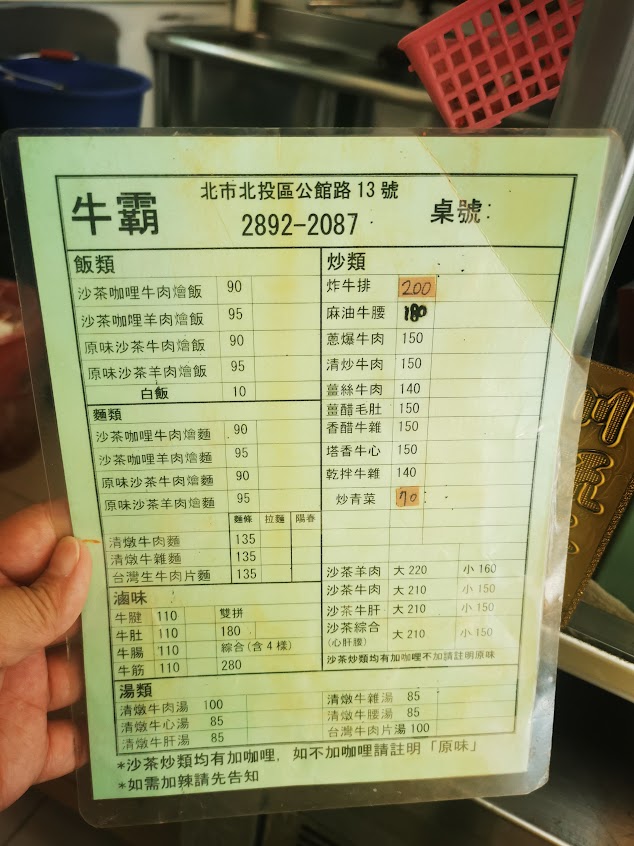 牛霸
北市北投區公館路 13 號
2892-2087
桌號：
飯類
沙茶咖哩牛肉燴飯 90
沙茶咖哩羊肉燴飯 95
原味沙茶牛肉燴飯 90
原味沙茶羊肉燴飯 95
白飯 10
麵類
沙茶咖哩牛肉燴麵 90
沙茶咖哩羊肉燴麵 95
原味沙茶牛肉燴麵 90
原味沙茶羊肉燴麵 95
麵條 拉麵 陽春
清燉牛肉麵 135
清燉牛雜麵 135
台灣生牛肉片麵 135
滷味
牛腱 110 雙拼
牛肚 110 180
牛腸 110 綜合(含 4 樣)
牛筋 110 280
炒類
炸牛排 200
麻油牛腰 180
蔥爆牛肉 150
清炒牛肉 150
薑絲牛肉 140
薑醋毛肚 150
香醋牛雜 150
塔香牛心 150
乾拌牛雜 140
炒青菜 70
沙茶羊肉 大 220 小 160
沙茶牛肉 大 210 小 150
沙茶牛肝 大 210 小 150
沙茶綜合 大 210 小 150
(心肝腰)
沙茶炒類均有加咖哩不加請註明原味
湯類
清燉牛肉湯 100
清燉牛心湯 85
清燉牛肝湯 85
清燉牛雜湯 85
清燉牛腰湯 85
台灣牛肉片湯 100
*沙茶炒類均有加咖哩，如不加咖哩請註明「原味」
*如需加辣請先告知